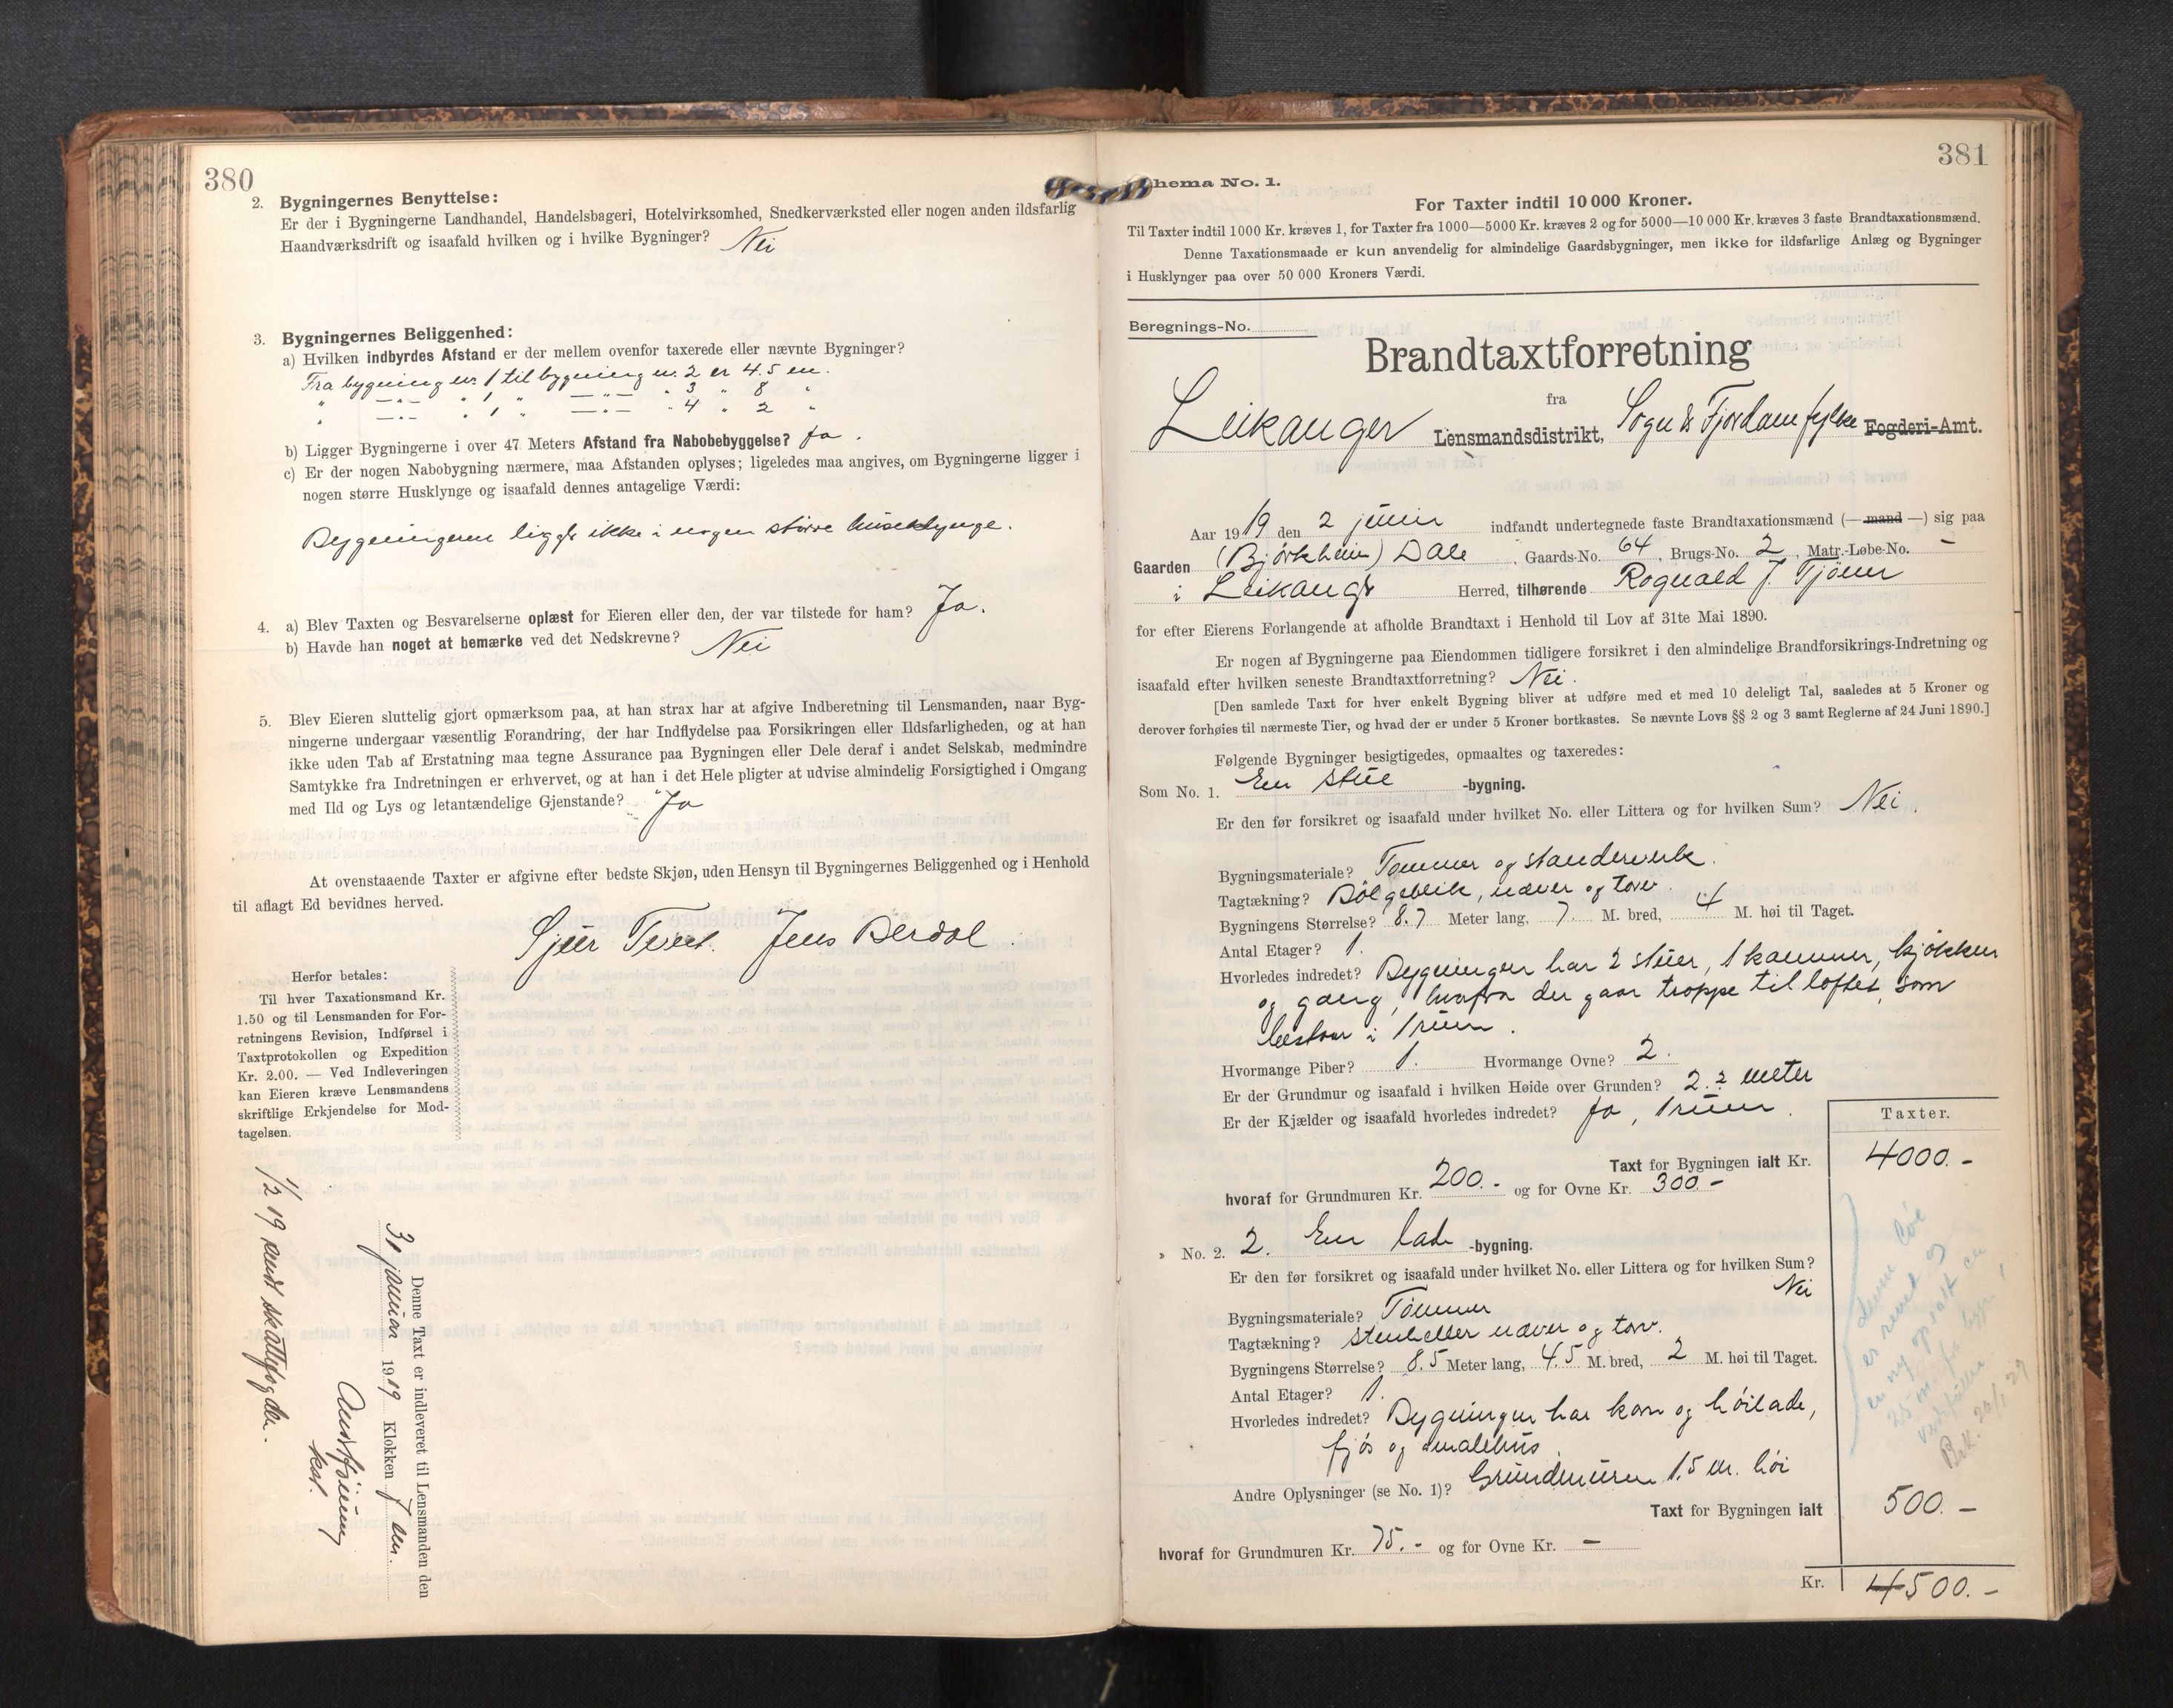 380
2. Bygningernes Benyttelse:
Er der i Bygningerne Landhandel, Handelsbageri, Hotelvirksomhed, Snedkerværksted eller nogen anden ildsfarlig
Haandværksdrift og isaafald hvilken og i hvilke Bygninger? Nei
3. Bygningernes Beliggenhed:
a) Hvilken indbyrdes Afstand er der mellem ovenfor taxerede eller nævnte Bygninger?
Fra bygning nr. 1 til bygning nr. 2 er 4.5 m.
" —"— " 1 " —"— " 3 " 8 "
" —"— " 1 " —"— " 4 " 2 "
b) Ligger Bygningerne i over 47 Meters Afstand fra Nabobebyggelse? Ja.
c) Er der nogen Nabobygning nærmere, maa Afstanden oplyses; ligeledes maa angives, om Bygningerne ligger i
nogen større Husklynge og isaafald dennes antagelige Værdi:
Bygningerne ligger ikke i nogen større husklynge.
4. a) Blev Taxten og Besvarelserne oplæst for Eieren eller den, der var tilstede for ham? Ja.
b) Havde han noget at bemærke ved det Nedskrevne? Nei
5. Blev Eieren sluttelig gjort opmærksom paa, at han strax har at afgive Indberetning til Lensmanden, naar Byg-
ningerne undergaar væsentlig Forandring, der har Indflydelse paa Forsikringen eller Ildsfarligheden, og at han
ikke uden Tab af Erstatning maa tegne Assurance paa Bygningen eller Dele deraf i andet Selskab, medmindre
Samtykke fra Indretningen er erhvervet, og at han i det Hele pligter at udvise almindelig Forsigtighed i Omgang
med Ild og Lys og letantændelige Gjenstande? Ja
At ovenstaaende Taxter er afgivne efter bedste Skjøn, uden Hensyn til Bygningernes Beliggenhed og i Henhold
til aflagt Ed bevidnes herved.
Sjur Tveit. Jens Berdal.
Herfor betales:
Til hver Taxationsmand Kr.
1.50 og til Lensmanden for For-
retningens Revision, Indførsel i
Taxtprotokollen og Expedition
Kr. 2.00. — Ved Indleveringen
kan Eieren kræve Lensmandens
skriftlige Erkjendelse for Mod-
tagelsen.
Denne Taxt er indleveret til Lensmanden den
31 januar 1919 Klokken 7 em.
kst.
1/2 19 sendt skattefogden.
381
hema No. 1.
For Taxter indtil 10 000 Kroner.
Til Taxter indtil 1000 Kr. kræves 1, for Taxter fra 1000—5000 Kr. kræves 2 og for 5000—10 000 Kr. kræves 3 faste Brandtaxationsmænd.
Denne Taxationsmaade er kun anvendelig for almindelige Gaardsbygninger, men ikke for ildsfarlige Anlæg og Bygninger
i Husklynger paa over 50 000 Kroners Værdi.
Beregnings-No.
Brandtaxtforretning
fra
Leikanger Lensmandsdistrikt, Sogn & Fjordane fylke Fogderi-Amt.
Aar 1919 den 2 juni indfandt undertegnede faste Brandtaxationsmænd (— mand —) sig paa
Gaarden (Bjørkheim) Dale, Gaards-No. 64, Brugs-No. 2, Matr.-Løbe-No. -
i Leikanger Herred, tilhørende Rognald J. Tjønn
for efter Eierens Forlangende at afholde Brandtaxt i Henhold til Lov af 31te Mai 1890.
Er nogen af Bygningerne paa Eiendommen tidligere forsikret i den almindelige Brandforsikrings-Indretning og
isaafald efter hvilken seneste Brandtaxtforretning? Nei.
[Den samlede Taxt for hver enkelt Bygning bliver at udføre med et med 10 deleligt Tal, saaledes at 5 Kroner og
derover forhøies til nærmeste Tier, og hvad der er under 5 Kroner bortkastes. Se nævnte Lovs §§ 2 og 3 samt Reglerne af 24 Juni 1890.]
Følgende Bygninger besigtigedes, opmaaltes og taxeredes:
Som No. 1. En stue -bygning.
Er den før forsikret og isaafald under hvilket No. eller Littera og for hvilken Sum? Nei.
Bygningsmateriale? Tømmer og standerverk.
Tagtækning? Bølgeblik, næver og torv.
Bygningens Størrelse? 8.7 Meter lang, 7. M. bred, 4 M. høi til Taget.
Antal Etager? 1.
Hvorledes indredet? Bygningen har 2 stuer, 1 kammer, kjøkken
og gang, hvorfra der gaar trappe til loftet, som
bestaar i 1 rum.
Hvormange Piber? 1. Hvormange Ovne? 2.
Er der Grundmur og isaafald i hvilken Høide over Grunden? 2.2 meter
Er der Kjælder og isaafald hvorledes indredet? Ja, 1 rum.
Taxter.
Taxt for Bygningen ialt Kr. 4000.-
hvoraf for Grundmuren Kr. 200.- og for Ovne Kr. 300-
» No. 2. 2. En lade -bygning.
Er den før forsikret og isaafald under hvilket No. eller Littera og for hvilken Sum?
Nei
Bygningsmateriale? Tømmer
Tagtækning? stenheller næver og torv.
Bygningens Størrelse? 8.5 Meter lang, 4.5 M. bred, 2 M. høi til Taget.
Antal Etager? 1.
Hvorledes indredet? Bygningen har korn og høilade,
fjøs og smalehus.
Andre Oplysninger (se No. 1)? Grundmuren 1.5 m. høi
Taxt for Bygningen ialt 500.-
hvoraf for Grundmuren Kr. 75.- og for Ovne Kr. -
Kr. 4500.-
denne løe
er revet og
en ny opsatt ca
25 m. fra